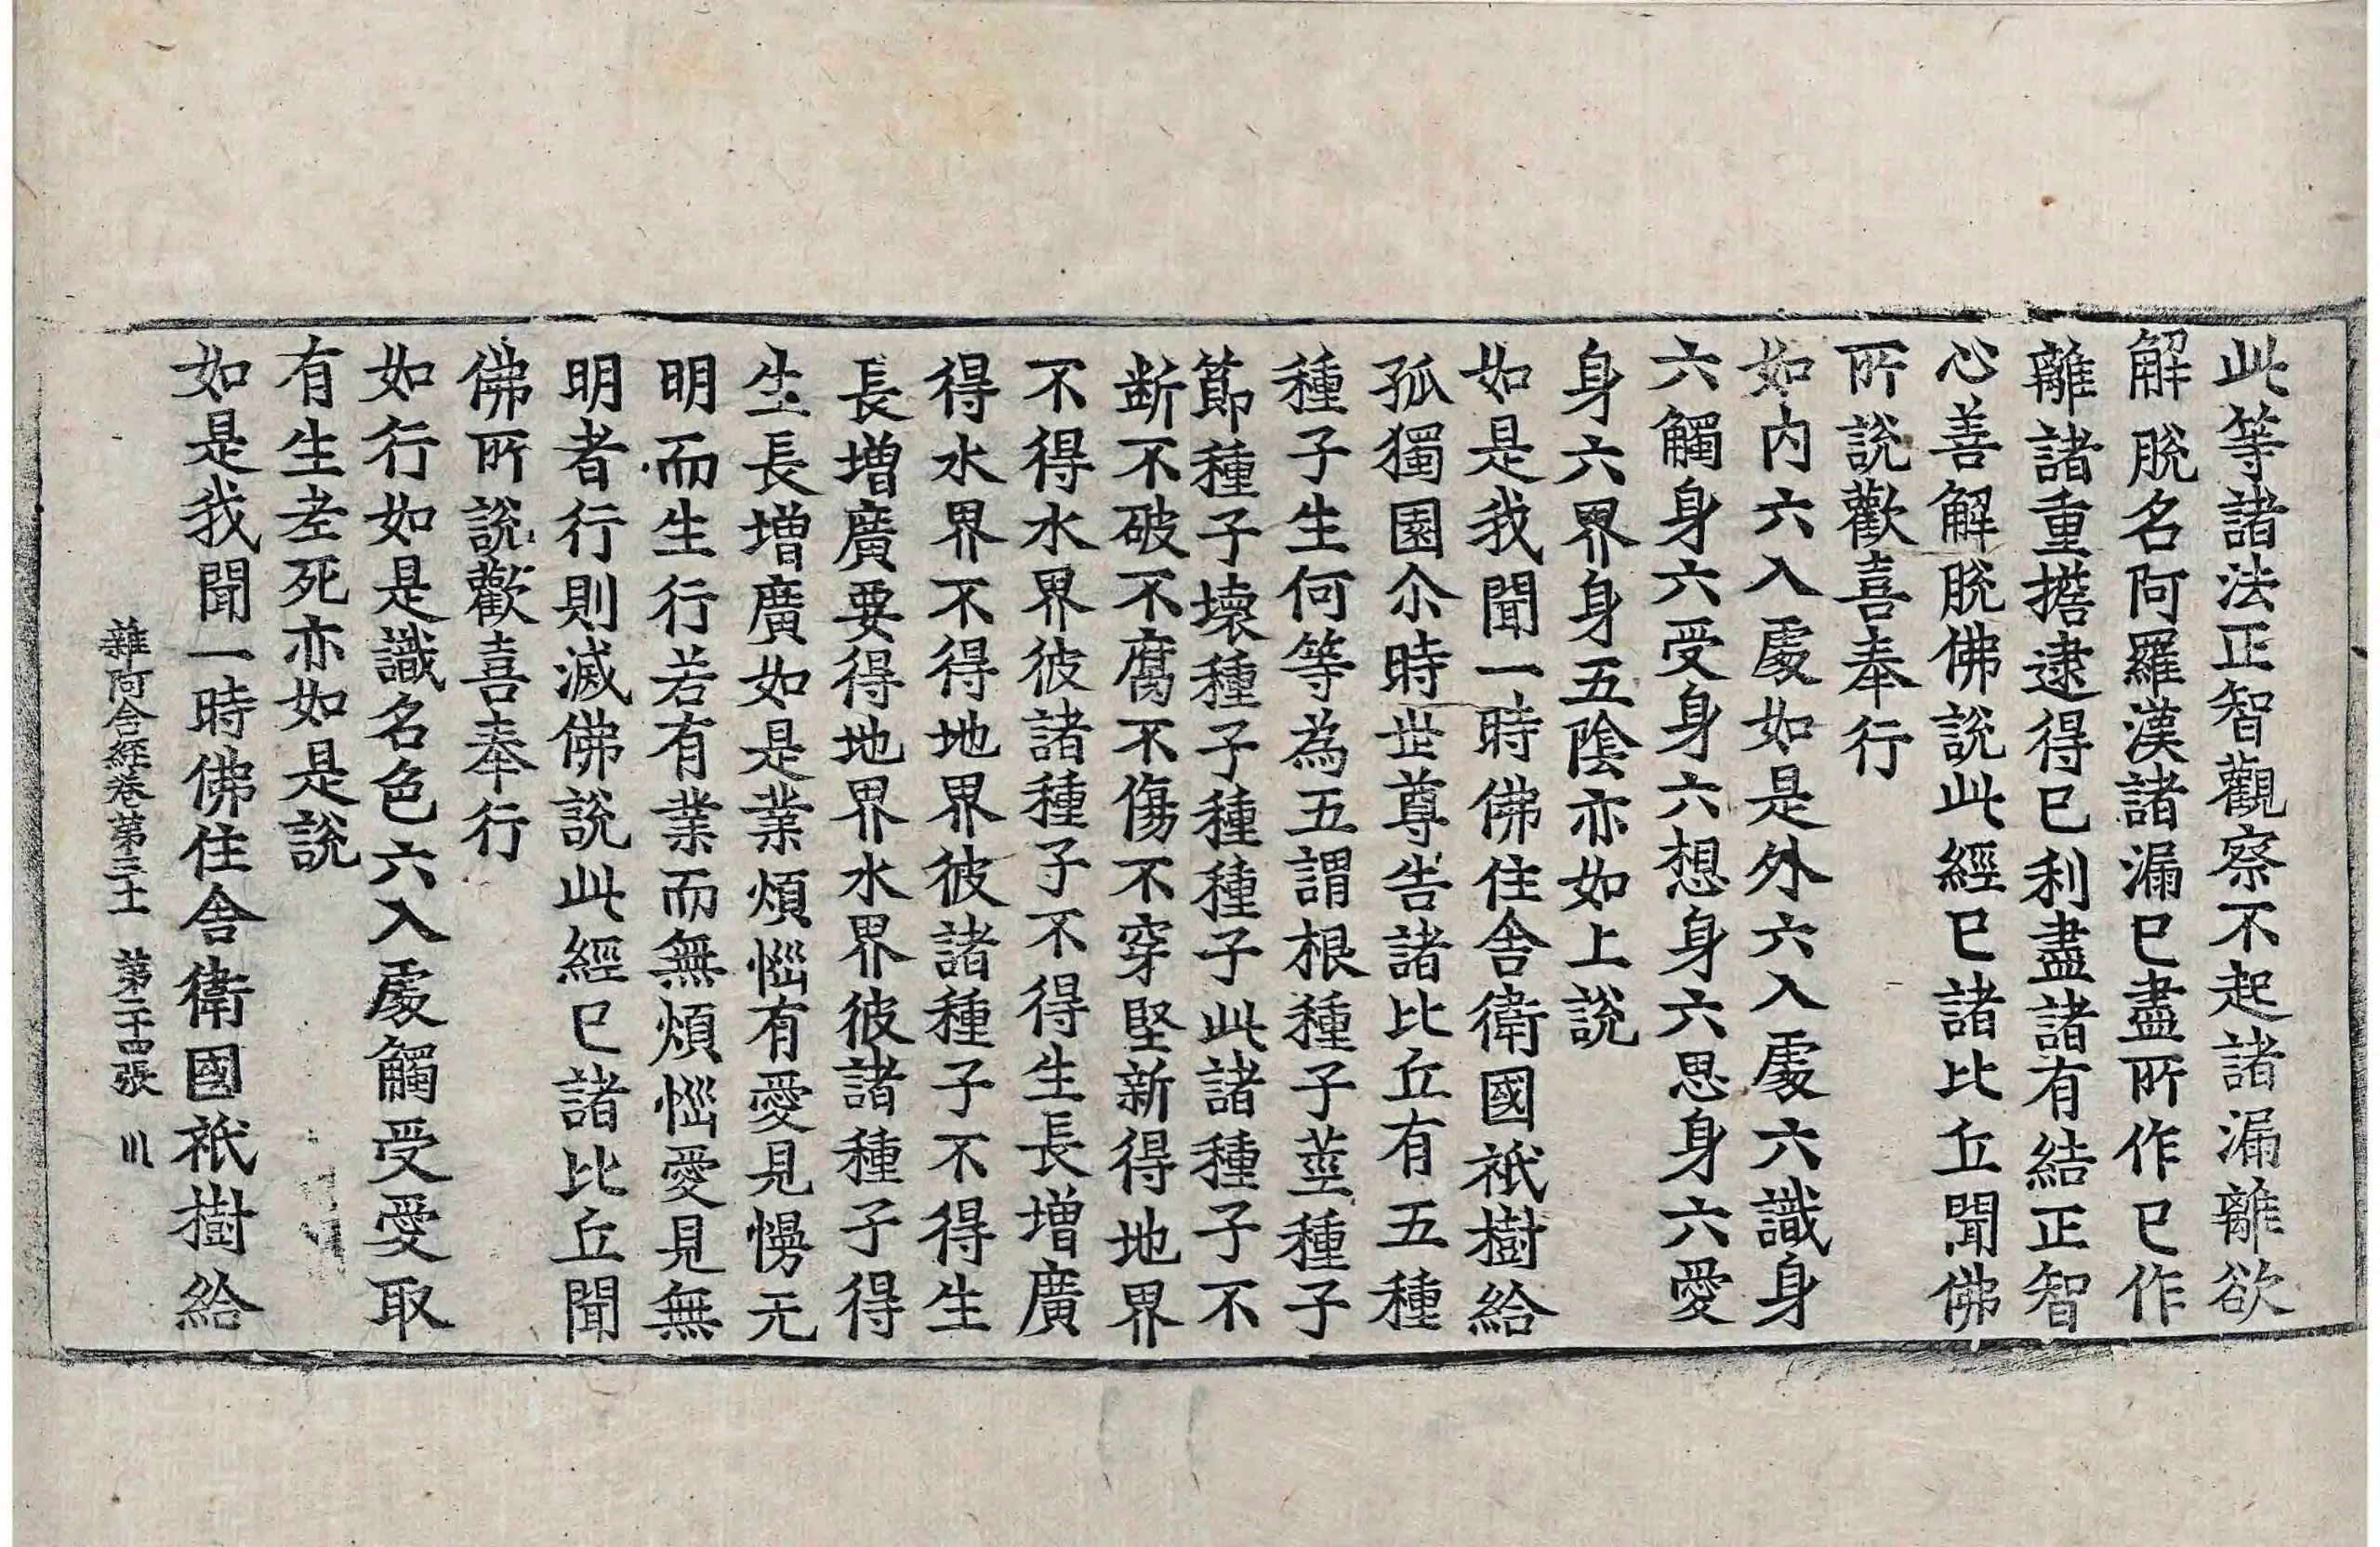 此等諸法正智觀察不起諸漏離欲
解脫名阿羅漢諸漏已盡所作已作
離諸重擔逮得已利盡諸有結正智
心善解脫佛說此經已諸比丘聞佛
所說歡喜奉行
如內六入處如是外六入處六識身
六觸身六受身六想身六思身六愛
身六界身五陰亦如上說
如是我聞一時佛住舍衛國祇樹給
孤獨園尒時世尊告諸比丘有五種
種子生何等為五謂根種子莖種子
節種子壞種子種種子此諸種子不
断不破不腐不傷不穿堅新得地界
不得水界彼諸種子不得生長增廣
得水界不得地界彼諸種子不得生
長增廣要得地界水界彼諸種子得
生長增廣如是業煩惱有愛見慢无
明而生行若有業而無煩惱愛見無
明者行則滅佛說此經已諸比丘聞
佛所說歡喜奉行
如行如是識名色六入處觸受愛取
有生老死亦如是說
如是我聞一時佛住舍衛國祇樹給
雜阿含經卷第三十一 第二十四張 川